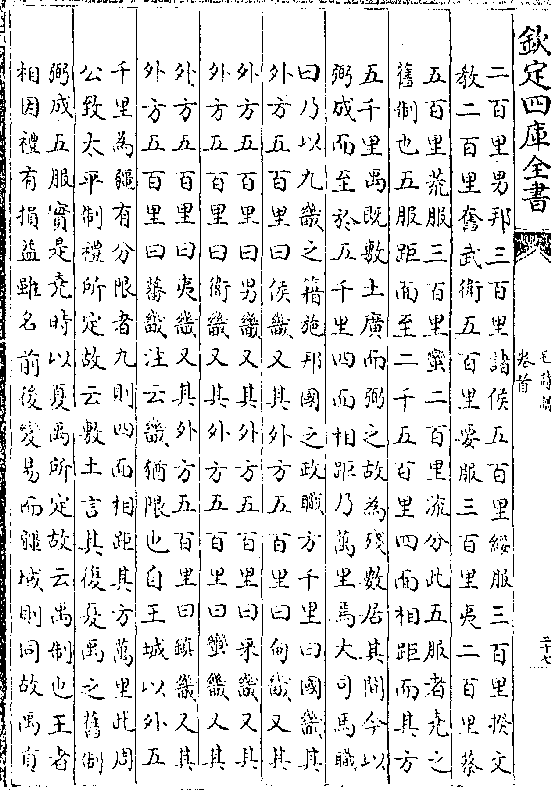 欽定四庫全書
卷首
二十七
二百里男邦三百里諸侯五百里綏服三百里揆文
教二百里奮武衛五百里要服三百里夷二百里蔡
五百里荒服三百里蠻二百里流分此五服者堯之
舊制也五服距面至二千五百里四面相距而其方
五千里禹既敷土廣而弼之故為殘數居其間今以
弼成而至於五千里四面相距乃萬里焉大司馬職
曰乃以九畿之籍施邦國之政職方千里曰國畿其
外方五百里曰侯畿又其外方五百里曰甸畿又其
外方五百里曰男畿又其外方五百里曰采畿又其
外方五百里曰衛畿又其外方五百里曰蠻畿又其
外方五百里曰夷畿又其外方五百里曰鎮畿又其
外方五百里曰蕃畿注云畿猶限也自王城以外五
千里為疆有分限者九則四面相距其方萬里此周
公致太平制禮所定故云敷土言其復夏禹之舊制
弼成五服實是堯時以夏禹所定故云禹制也王者
相因禮有損益雖名前後變易而疆域則同故禹貢